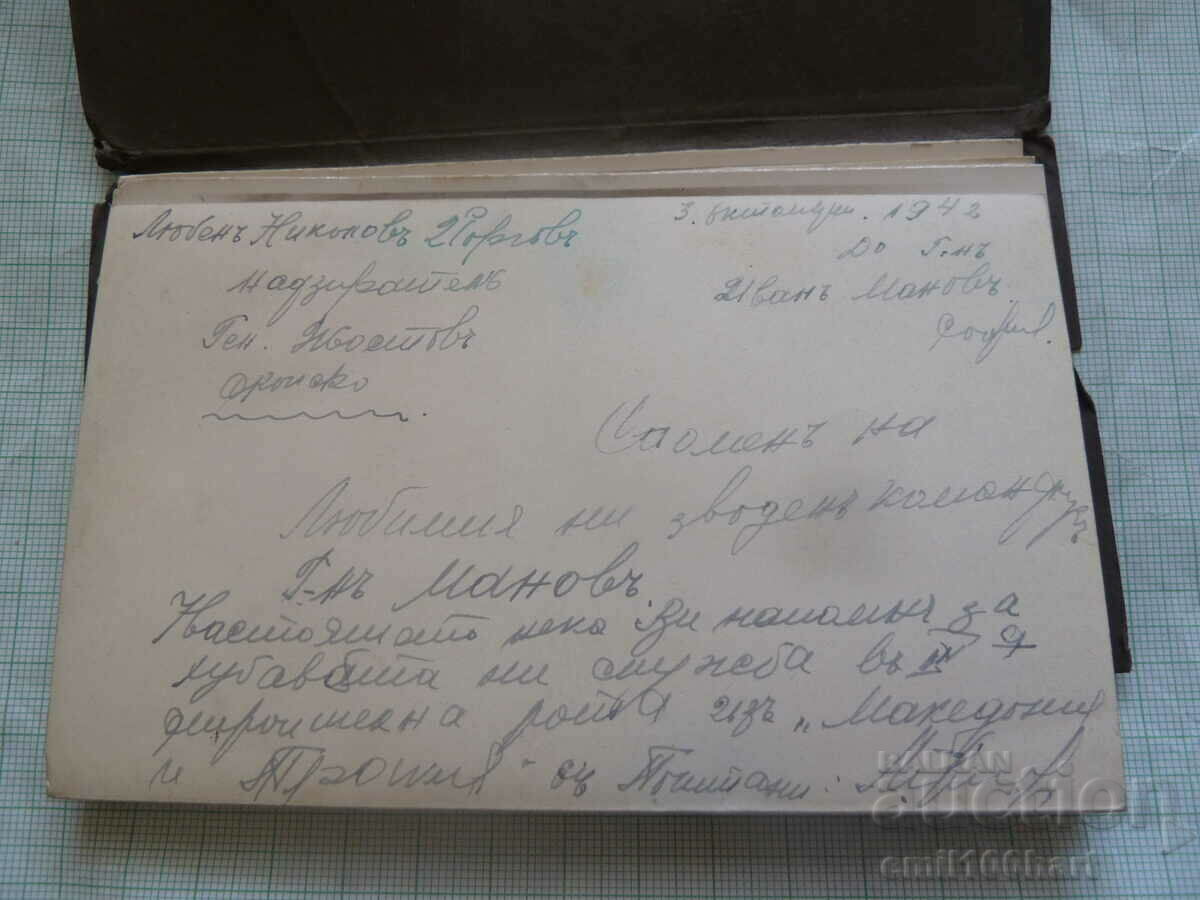 Любенъ Николовъ Георговъ
надзирателъ
Ген. Костовъ
Скопско
3. октомври. 1942
До Г-нъ
Иванъ Мановъ
София.
Споменъ на
Любимия ни зводенъ командиръ
Г-нъ Мановъ.
Настоящото нека Ви напомнъ за
хубавата ни служба въ II я
строителна рота изъ „Македония
и Тракия" съ Почитани:
BALKAN
auction
emil100hart